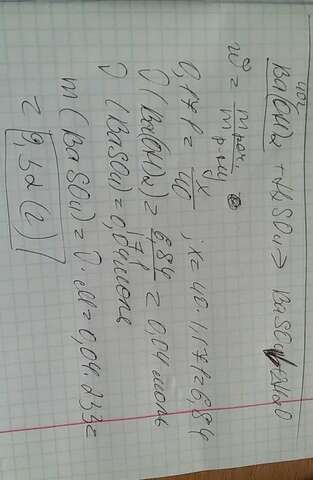 40г
Ba(OH)2 + H2SO4 → BaSO4 + H2O
w = m р.в. / m р-ра
0,171 = x/40 ; x = 40 · 1,171 = 6,84
ν(Ba(OH)2) = 6,84/171 = 0,04 моль
ν(BaSO4) = 0,04 моль
m(BaSO4) = ν · M = 0,04 · 233 =
= 9,32 (г)